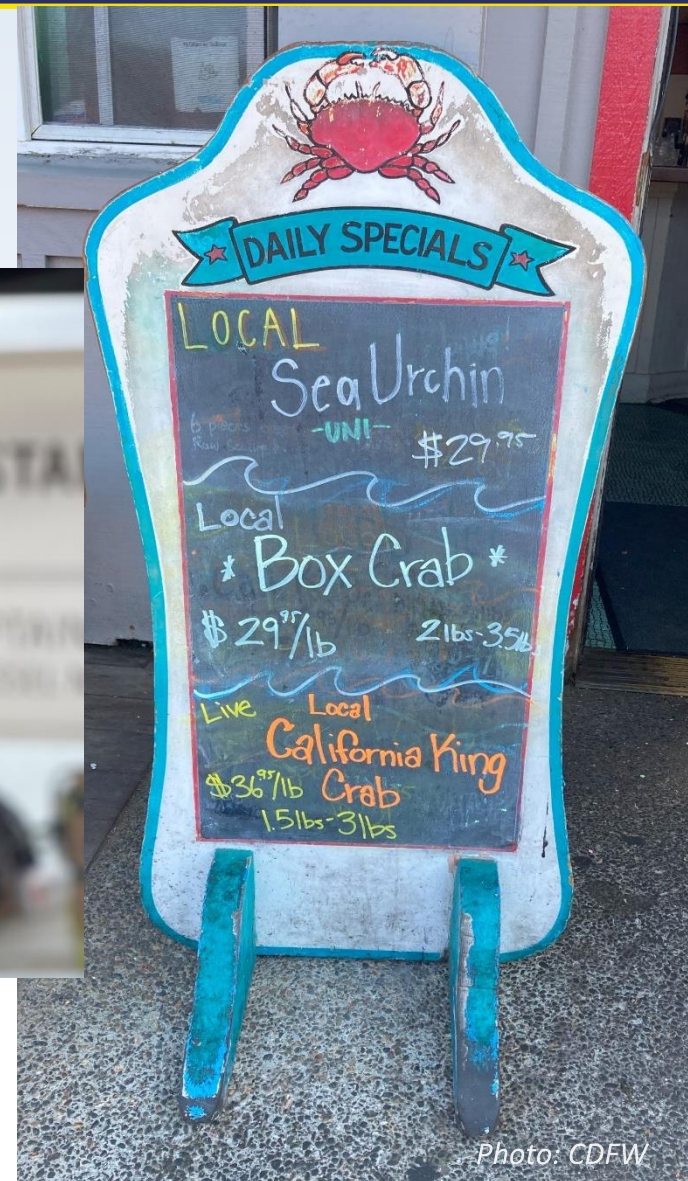 DAILY SPECIALS
LOCAL
Sea Urchin
-UNI-
6 pieces
$29.95
Local
* Box Crab *
$29.95/lb 2lbs-3.5lb
Live Local
California King
$36.95/lb Crab
1.5lbs-3lbs
Photo: CDFW